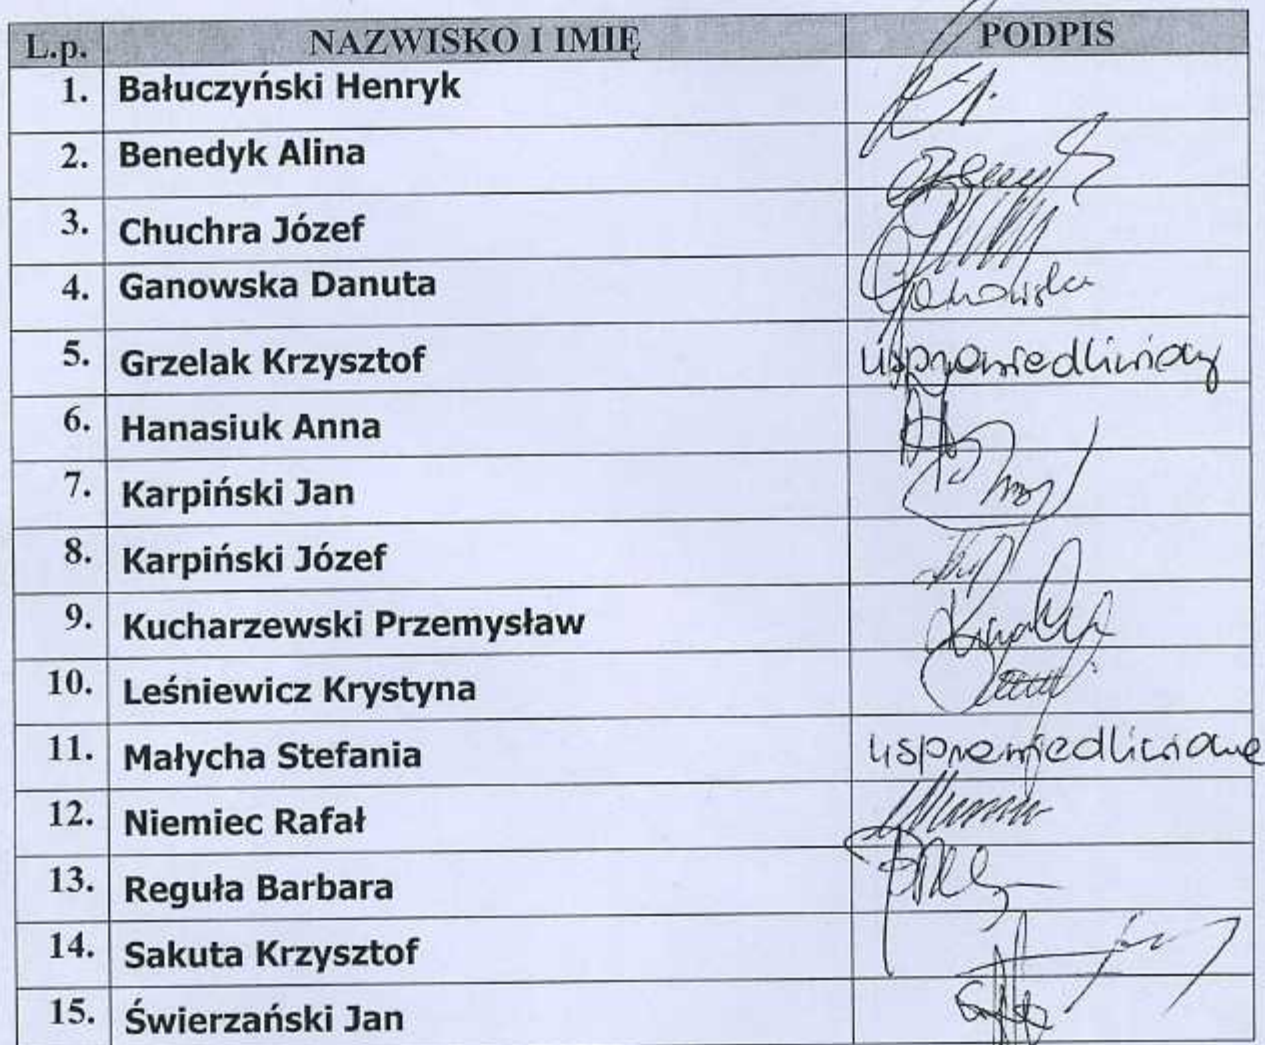 L.p. NAZWISKO I IMIĘ PODPIS
1. Bałuczyński Henryk
2. Benedyk Alina
3. Chuchra Józef
4. Ganowska Danuta Ganowska
5. Grzelak Krzysztof usprawiedliwiony
6. Hanasiuk Anna
7. Karpiński Jan
8. Karpiński Józef
9. Kucharzewski Przemysław
10. Leśniewicz Krystyna
11. Małycha Stefania usprawiedliwiona
12. Niemiec Rafał
13. Reguła Barbara
14. Sakuta Krzysztof
15. Świerzański Jan